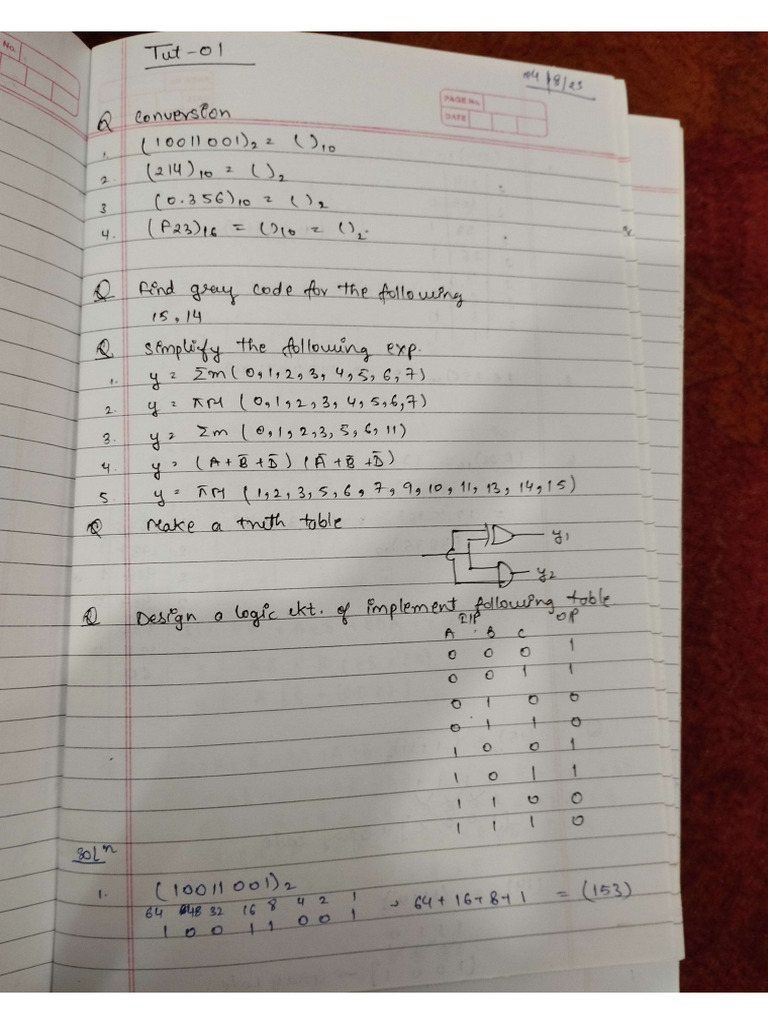 No.
Tut-01
04/8/23
PAGE No.
DATE
Q Conversion
1. (10011001)₂ = ( )₁₀
2. (214)₁₀ = ( )₂
3 (0.356)₁₀ = ( )₂
4. (F23)₁₆ = ( )₁₀ = ( )₂.
Q Find gray code for the following
15, 14
Q Simplify the following exp.
1. y = Σm (0,1,2,3,4,5,6,7)
2. y = πM (0,1,2,3,4,5,6,7)
3. y = Σm (0,1,2,3,5,6,11)
4. y = (A+B̄+D̄) (Ā+B̄+D̄)
5. y = πM (1,2,3,5,6,7,9,10,11,13,14,15)
Q Make a truth table
y₁
y₂
Q Design a logic ckt. of implement following table
I/P O/P
A B C
0 0 0 1
0 0 1 1
0 1 0 0
0 1 1 0
1 0 0 1
1 0 1 1
1 1 0 0
1 1 1 0
Solⁿ
1. (10011001)₂
64 32 16 8 4 2 1 , 64+16+8+1 = (153)
1 0 0 1 1 0 0 1